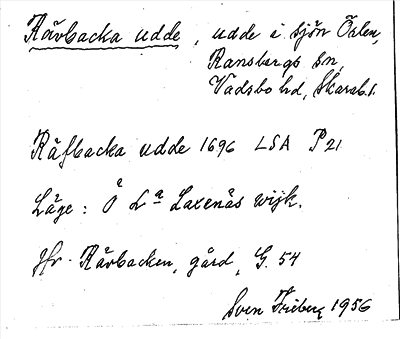 Rävbacka udde, udde i sjön Örlen,
Ransbergs sn,
Vadsbo hd, Skarab. l.
Räfbacka udde 1696 LSA P21
Läge: Å La Laxenäs wijk.
Jfr. Rävbacken, gård, G. 54
Sven Friberg 1956